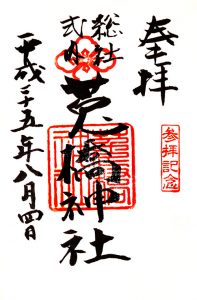 奉拝
参拝記念
総社
式内
莵橋神社
平成二十五年八月四日